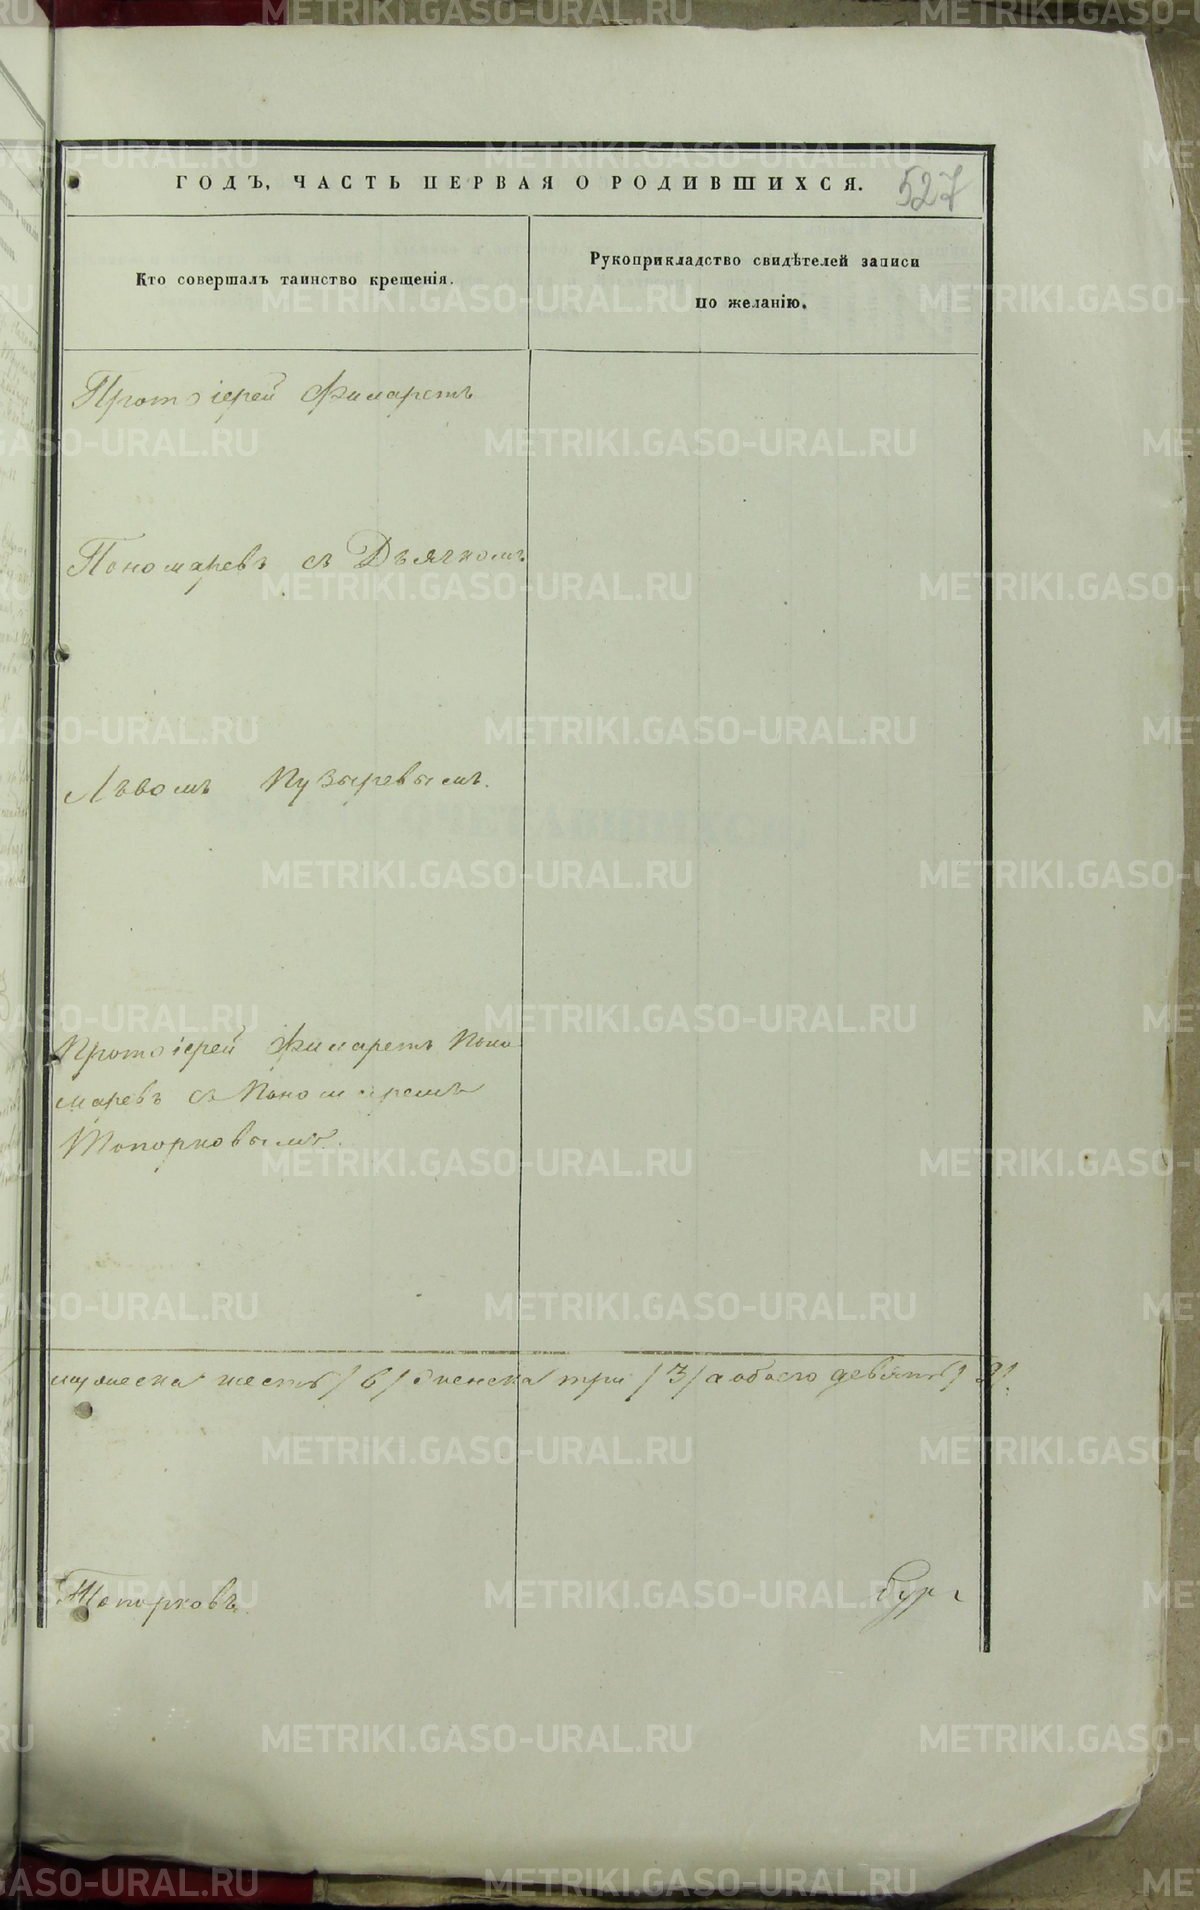 ГОДЪ, ЧАСТЬ ПЕРВАЯ О РОДИВШИХСЯ.
527
Кто совершалъ таинство крещенія.
Рукоприкладство свидѣтелей записи
по желанію.
Протоіерей Филаретъ
Пономаревъ съ Дьячкомъ
Львомъ Пузыревымъ.
Протоіерей Филаретъ Поно
маревъ съ Пономаремъ
Топорковымъ.
мужеска шесть /6/ женска три /3/ а обоего девять /9/.
Топорковъ.
METRIKI.GASO-URAL.RU